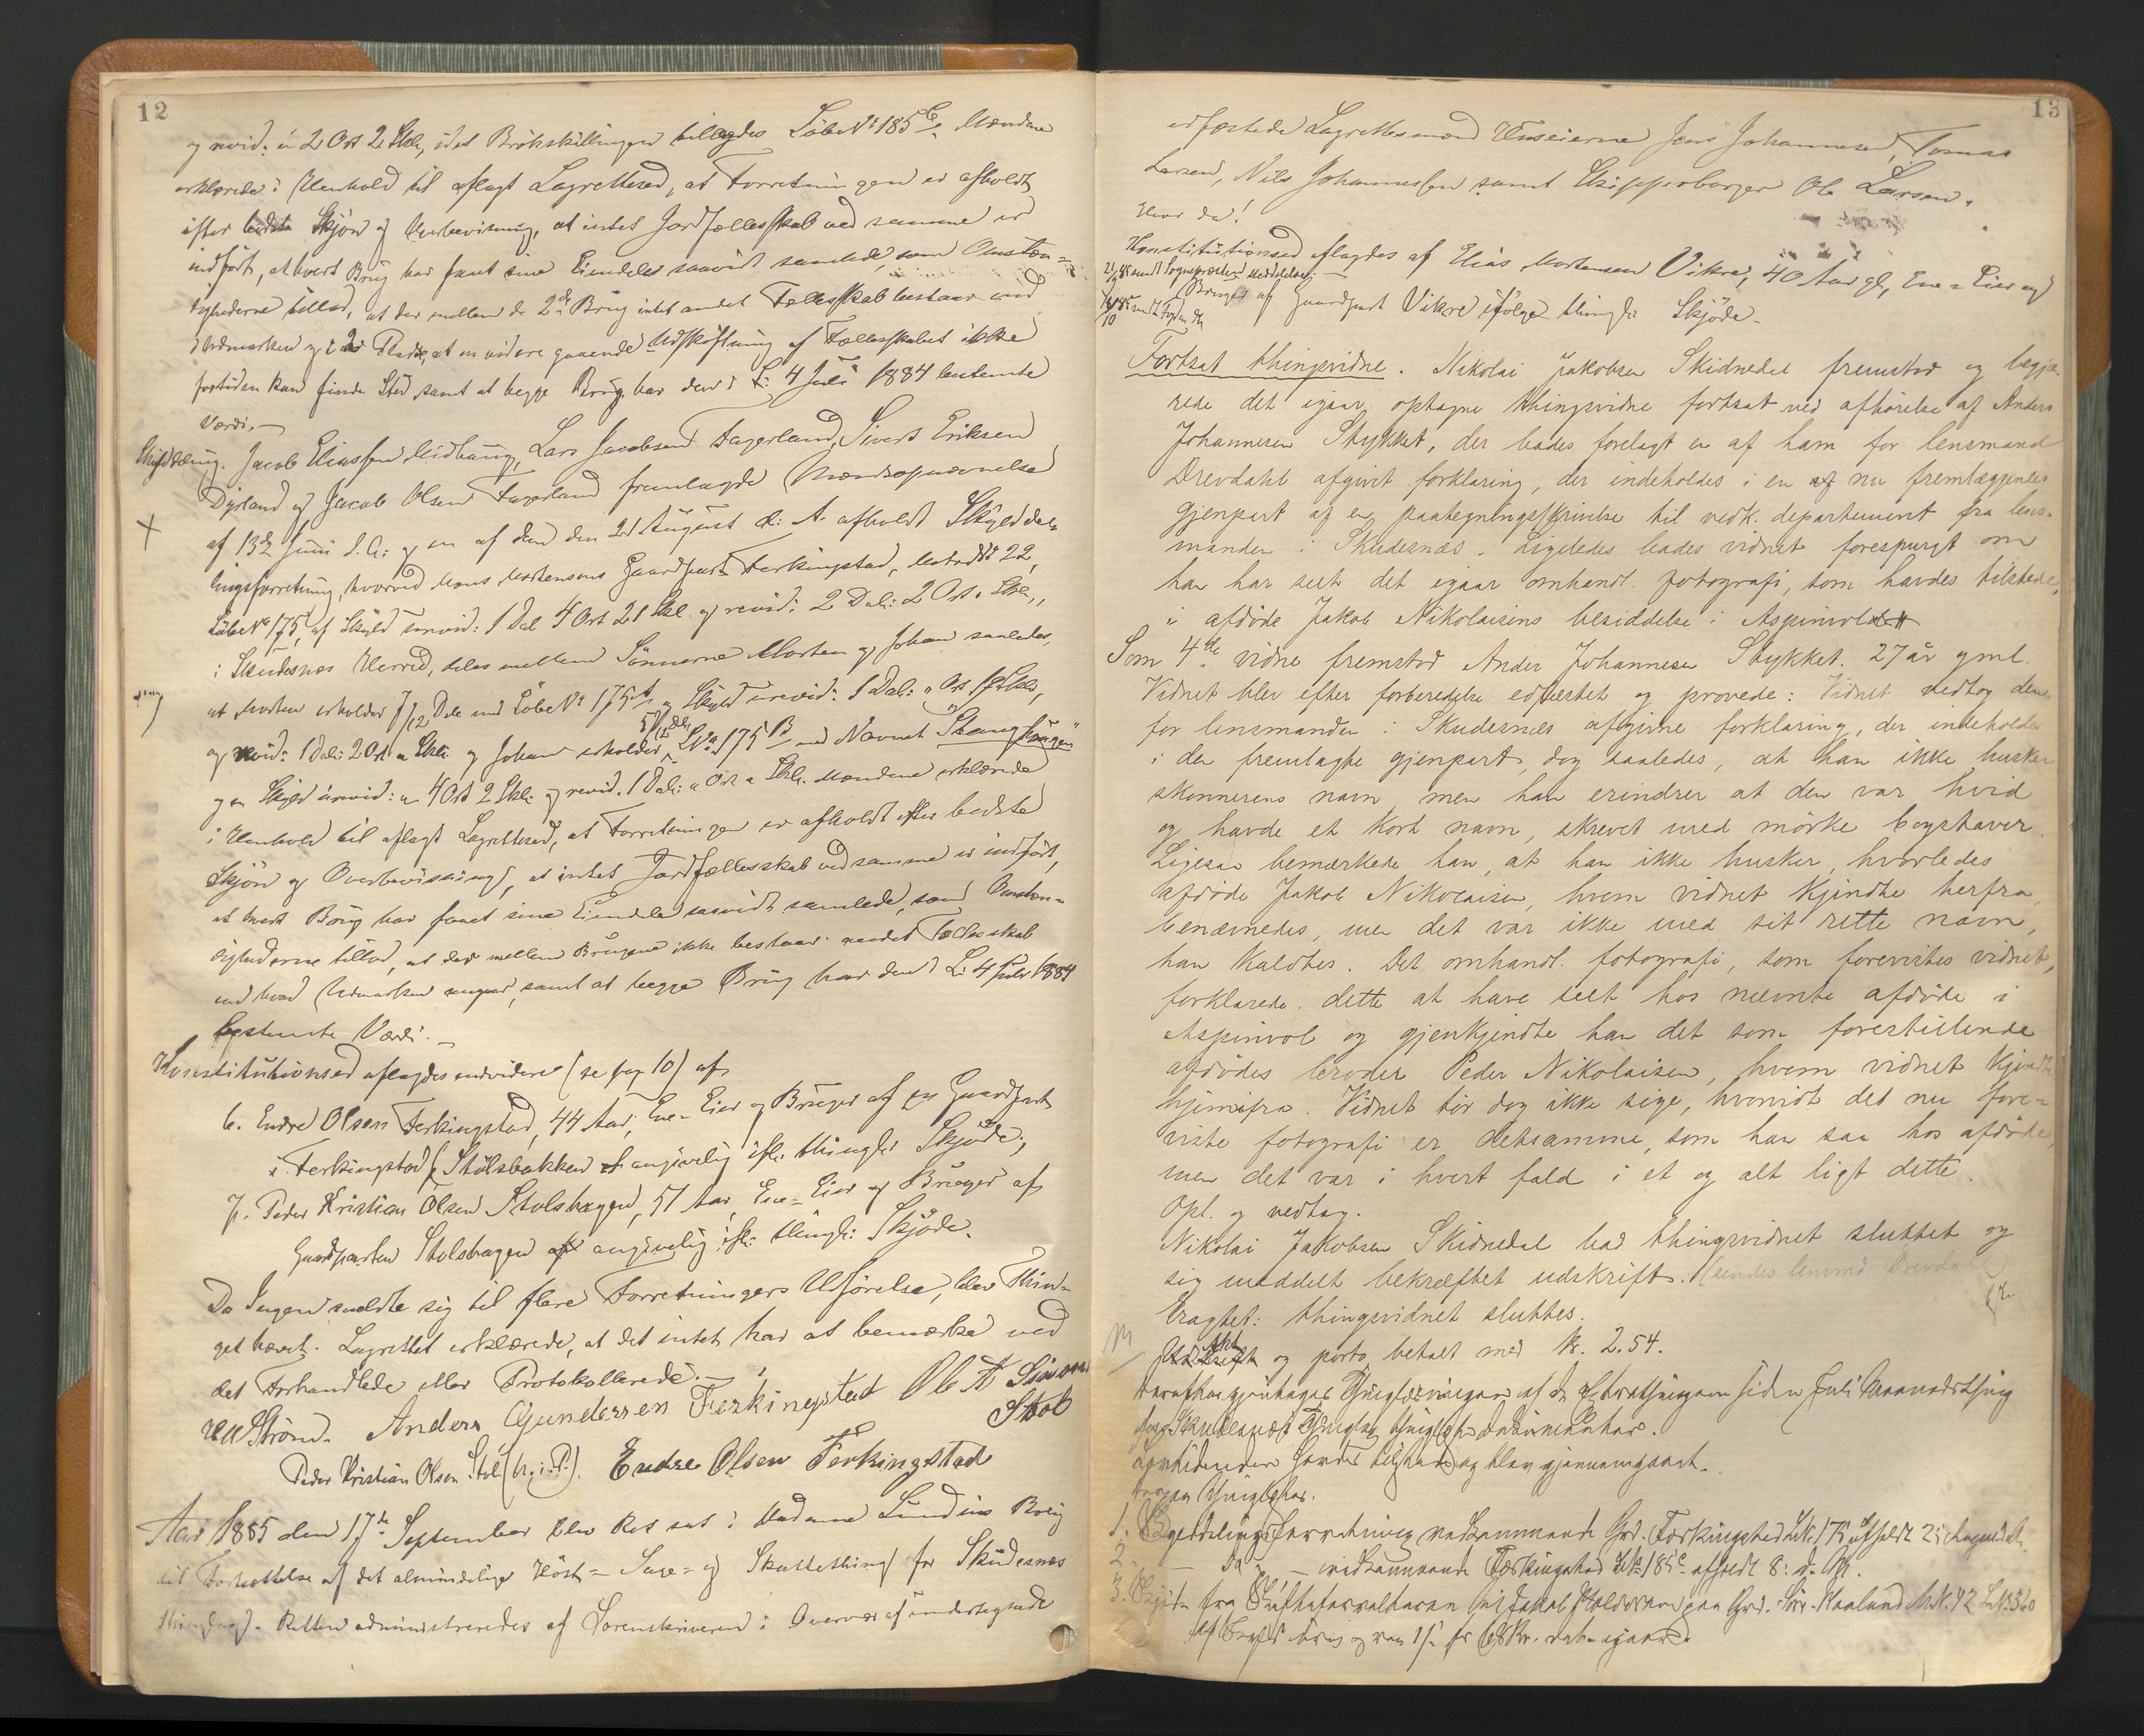 12
og revid: " 2 Ort 2 Skl, idet Brökskillingen tillagdes Löbe No 185 b. Mændene
erklærede i Henhold til aflagt Lagretteed, at Forretningen er afholdt
efter bedste Skjön og Overbevisning, at intet Jordfællesskab ved samme er
indfört, at hvert Brug har faaet sine Eiendele saavidt samlede, som Omstæn-
dighederne tillod, at der mellem de 2de Brug intet andet Fællesskab bestaar end
i Udmarken og at en videre gaaende Udskiftning af Fællesskabet ikke
fortiden kan finde Sted samt at begge Brug har den i L: 4 Juli 1884 bestemte
Værdi.
Skylddeling. Jacob Eliassen Midhaug, Lars Jacobsen Fagerland, Sivert Eriksen
Dyrland og Jacob Olsen Fagerland fremlagde Mændsopnævnelse
af 13de Juni d. A: og en af dem den 21 August d: A. afholdt Skylddel-
ingsforretning, hvorved Mons Mortensens Gaardpart Ferkingstad, Matr No 22,
Löbe No 175, af Skyld urevid: 1 Dal 4 Ort 21 Skl. og revid: 2 Dal: 2 Ort " Skl,
i Skudesnes Herred, deles mellem Sönnerne Morten og Johan saaledes,
at Morten erholder 7/12 Dele med Löbe No 175 A og Skyld urevid: 1 Dal: " Ort 19 Skl,
og revid: 1 Dal: 2 Ort " Skl: og Johan erholder 5/12 Dele L No 175 B med Navnet Stanghaugen
og en Skyld urevid: " 4 Ort 2 Skl: og revid. 1 Dal: " Ort " Skl: Mændene erklærede
i Henhold til aflagt Lagretteed, at Forretningen er afholdt efter bedste
Skjön og Overbevisning, at intet Jordfællesskab ved samme er indfört,
at hvert Brug har faaet sine Eiendele saavidt samlede, som Omstæn-
dighederne tillod, at der mellem Brugene ikke bestaar andet Fællesskab
end hvad Udmarken angaar, samt at begge Brug har den i L: 4 Juli 1884
bestemte Værdi.
Konstitutionsed aflagdes endvidere (se pag 10) af
6. Endre Olsen Ferkingstad, 44 Aar, Ene-Eier og Bruger af en Gaardpart
i Ferkingstad (Stölsbakken) angivelig ifl: thinglæst Skjöde;
7. Peder Kristian Olsen Stolshagen, 51 Aar, Ene-Eier og Bruger af
Gaardparten Stolshagen angivelig ifl: thingl: Skjöde.
Da Ingen meldte sig til flere Forretningers Udförelse, blev Thin-
get hævet. Lagrettet erklærede, at det intet har at bemærke ved
det Forhandlede eller Protokollerede.
Ström. Anders Gundersen Ferkingstad Ole A Simons
Stol
Peder Kristian Olsen Stol (m. i. P.). Endre Olsen Ferkingstad
Aar 1885 den 17de September blev Ret sat i Madame Lundins Brug
til Fortsættelse af det almindelige Höst- Sage- og Skattething for Skudesnes
Thinglag. Retten administreredes af Sorenskriveren i Overvær af undertegnede
13
edfæstede Lagrettesmænd Huseierne Jens Johannesen, Tomas
Larsen, Nils Johannessen samt Skipperborger Ole Larsen.
Hvor da!
Konstitutionsed aflagdes af Elias Mortensen Vikre, 40 Aar gl, Ene-Eier og
Bruger af Gaardpart Vikre ifölge thingl: Skjöde.
Fortsat thingsvidne. Nikolai Jakobsen Skidnedal fremstod og begjæ-
rede det igaar optagne thingsvidne fortsat ved afhörelse af Anders
Johannesen Stykket, der bades forelagt en af ham for lensmand
Drevdahl afgivet forklaring, der indeholdes i en nu fremlæggendes
gjenpart af en paategningsskrivelse til vedk. departement fra lens-
manden i Skudesnæs. Ligeledes bades vidnet forespurgt om
han har seet det igaar omhandl. fotografi, som havdes tilstede,
i afdöde Jakob Nikolaisens besiddelse i Aspinvold
Som 4de vidne fremstod Anders Johannesen Stykket. 27 år gml.
Vidnet blev efter forberedelse edfæstet og provede: Vidnet vedtog den
for lensmanden i Skudesnæs afgivne forklaring, der indeholdes
i den fremlagte gjenpart, dog saaledes, at han ikke husker
skonnerens navn, men han erindrer at den var hvid
og havde et kort navn, skrevet med mörke bogstaver.
Ligesaa bemærkede han, at han ikke husker, hvorledes
afdöde Jakob Nikolaisen, hvem vidnet kjendte herfra,
benævnedes, men det var ikke med sit rette navn,
han kaldtes. Det omhandl. fotografi, som forevistes vidnet,
forklarede dette at have seet hos nævnte afdöde i
Aspinvol og gjenkjendte han det som forestillende
afdödes broder Peder Nikolaisen, hvem vidnet kjendte
hjemifra. Vidnet tör dog ikke sige, hvorvidt det nu fore-
viste fotografi er detsamme, som han saa hos afdöde,
men det var i hvert fald i et og alt ligt dette.
Opl. og vedtag.
Nikolai Jakobsen Skidnedal bad thingsvidnet sluttet og
sig meddelt bekræftet udskrift. (sendes lensmd Drevdahl)
Eragtet: thingsvidnet sluttes.
Akt og porto betalt med Kr. 2.54.
Derefter foretoges Thinglæsningen af de Skudesnæs Thinglag thinglæste dokumenter.
1. Skylddelingsforretning vedkommende Grd. Ferkingstad L.No 175 afholdt 21 August d. A.
2. — do — vedkommende Ferkingstad L No 185 c afholdt 8: d. M.
3. Skjöde fra Stiftsforvalteren til Jakob paa Grd. Söre Haaland M.N. 42 L.N. 360